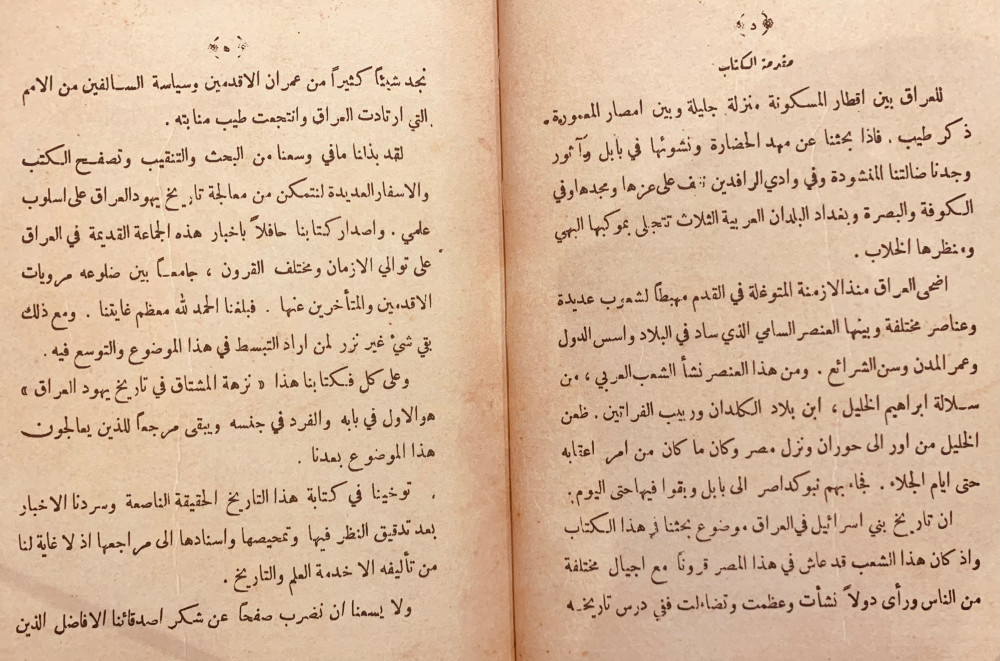 د
مقدمة الكتاب
للعراق بين اقطار المسكونة منزلة جليلة وبين امصار المعمورة
ذكر طيب . فاذا بحثنا عن مهد الحضارة ونشوئها في بابل وآثور
وجدنا ضالتنا المنشودة وفي وادي الرافدين نقف على عزها ومجدها وفي
الكوفة والبصرة وبغداد البلدان العربية الثلاث تتجلى بموكبها البهي
ومنظرها الخلاب .
اضحى العراق منذ الازمنة المتوغلة في القدم مهبطاً لشعوب عديدة
وعناصر مختلفة وبينها العنصر السامي الذي ساد في البلاد واسس الدول
وعمر المدن وسن الشرائع . ومن هذا العنصر نشأ الشعب العبري ، من
سلالة ابراهيم الخليل ، ابن بلاد الكلدان وربيب الفراتين . ظعن
الخليل من اور الى حوران ونزل مصر وكان ما كان من امر اعقابه
حتى ايام الجلاء . فجاء بهم نبوكداصر الى بابل وبقوا فيها حتى اليوم :
ان تاريخ بني اسرائيل في العراق موضوع بحثنا في هذا الكتاب
واذ كان هذا الشعب قد عاش في هذا المصر قروناً مع اجيال مختلفة
من الناس ورأى دولاً نشأت وعظمت وتضاءلت ففي درس تاريخه
ه
نجد شيئاً كثيراً من عمران الاقدمين وسياسة السالفين من الامم
التي ارتادت العراق وانتجعت طيب منابته .
لقد بذلنا مافي وسعنا من البحث والتنقيب وتصفح الكتب
والاسفار العديدة لنتمكن من معالجة تاريخ يهود العراق على اسلوب
علمي . واصدار كتابنا حافلاً باخبار هذه الجماعة القديمة في العراق
على توالي الازمان ومختلف القرون ، جامعاً بين ضلوعه مرويات
الاقدمين والمتأخرين عنها . فبلغنا الحمد لله معظم غايتنا . ومع ذلك
بقي شيء غير نزر لمن اراد التبسط في هذا الموضوع والتوسع فيه .
وعلى كل فكتابنا هذا « نزهة المشتاق في تاريخ يهود العراق »
هو الاول في بابه والفرد في جنسه ويبقى مرجعاً للذين يعالجون
هذا الموضوع بعدنا .
توخينا في كتابة هذا التاريخ الحقيقة الناصعة وسردنا الاخبار
بعد تدقيق النظر فيها وتمحيصها واسنادها الى مراجعها اذ لا غاية لنا
من تأليفه الا خدمة العلم والتاريخ .
ولا يسعنا ان نضرب صفحاً عن شكر اصدقائنا الافاضل الذين